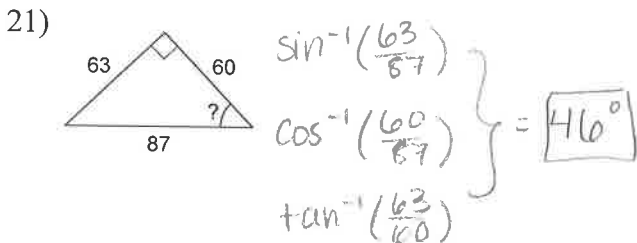 21)
63
60
?
87
sin⁻¹(63/87)
cos⁻¹(60/87)
tan⁻¹(63/60)
= 46°